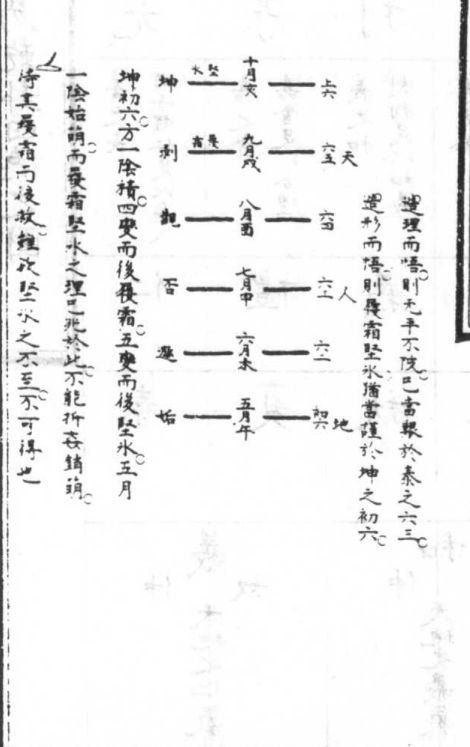 遇理而悟則无平不陂已當艱於泰之六三
遇形而悟則履霜堅氷猶當謹於坤之初六
天 人 地
上六 六五 六四 六三 六二 初六
十月亥 九月戌 八月酉 七月申 六月未 五月午
堅氷 履霜
坤 剥 觀 否 遯 姤
坤初六方一陰積四變而後履霜五變而後堅氷五月
一陰始萌而履霜堅氷之理已兆於此不能折姦銷萌
待其履霜而後救雖欲堅氷之不至不可得也